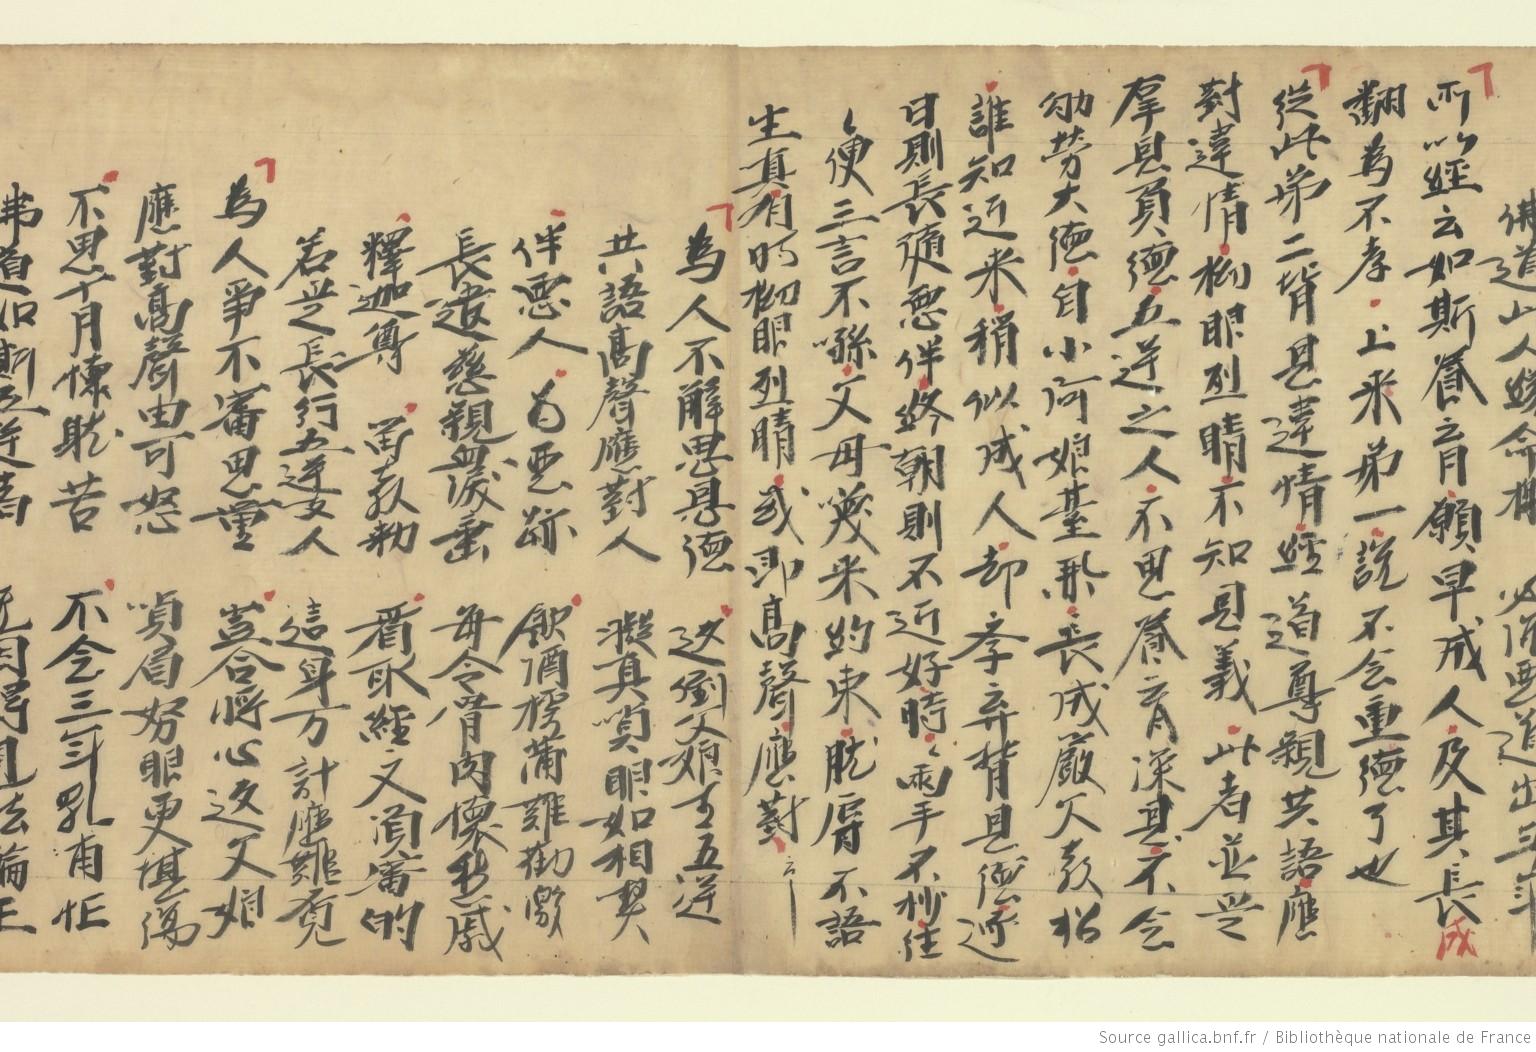 所以經云如斯養育願早成人及其長成
翻為不孝上來弟一說不念重德了也
從此弟二背恩違情經道尊親共語應
對違情拗眼烈睛不知恩義此者並是
辜恩負德五逆之人不思養育深恩不念
劬勞大德自小阿娘臺舉長成嚴父教招
誰知近來稍似成人却孝弃背恩德逆
日則長隨惡伴終朝則不近好時〻兩手不抄往
〻便三言不父母幾來約束脣不語
生真有時拗眼烈睛或即高聲應對云云
為人不解思恩德 返倒父娘生五逆
共語高聲應對人 擬真嗔眼如相喫
伴惡人 為惡跡 飲酒樗蒲難勸激
長遣慈親血淚垂 每令骨肉懷愁慼
釋迦尊 留教勑 看取經文須審的
若是長行五逆人 這身万計應難覓
為人爭不審思量 豈合將心返父娘
應對高聲由可怒 嗔眉努眼更堪傷
不思十月懷躭苦 不念三年乳甫忙
佛道如斯五逆者
Source gallica.bnf.fr / Bibliothèque nationale de France